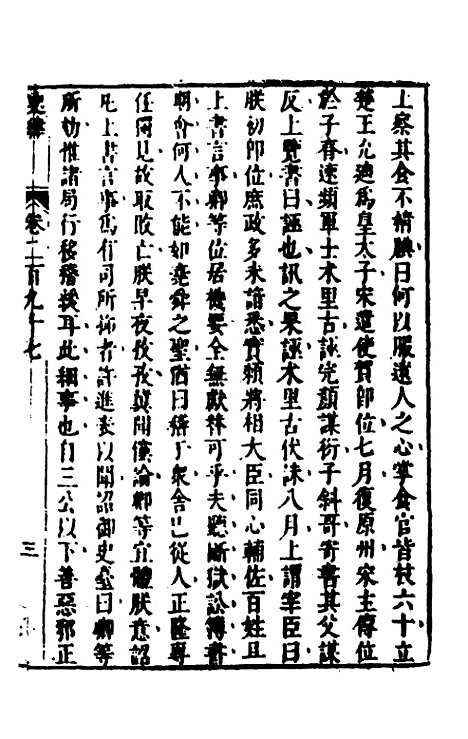 上察其食不精腆曰何以服遠人之心掌食官皆杖六十立
楚王允迪為皇太子宋遣使賀即位七月復原州宋主傳位
於子眘速頻軍士术里古誣完顏謀衍子斜哥寄書其父謀
反上覽書曰誣也訊之果誣术里古伏誅八月上謂宰臣曰
朕初即位庶政多未諳悉實賴將相大臣同心輔佐百姓且
上書言事卿等位居機要全無獻替可乎夫聽斷獄訟簿書
期會何人不能如堯舜之聖猶曰稽于衆舍己從人正隆專
任獨見故取敗亡朕早夜孜孜冀聞讜論卿等宜體朕意詔
凡上書言事為有司所抑者許進表以聞詔御史臺曰卿等
所劾惟諸局行移稽援耳此細事也自三公以下善惡邪正
史緯
卷二百九十七
三